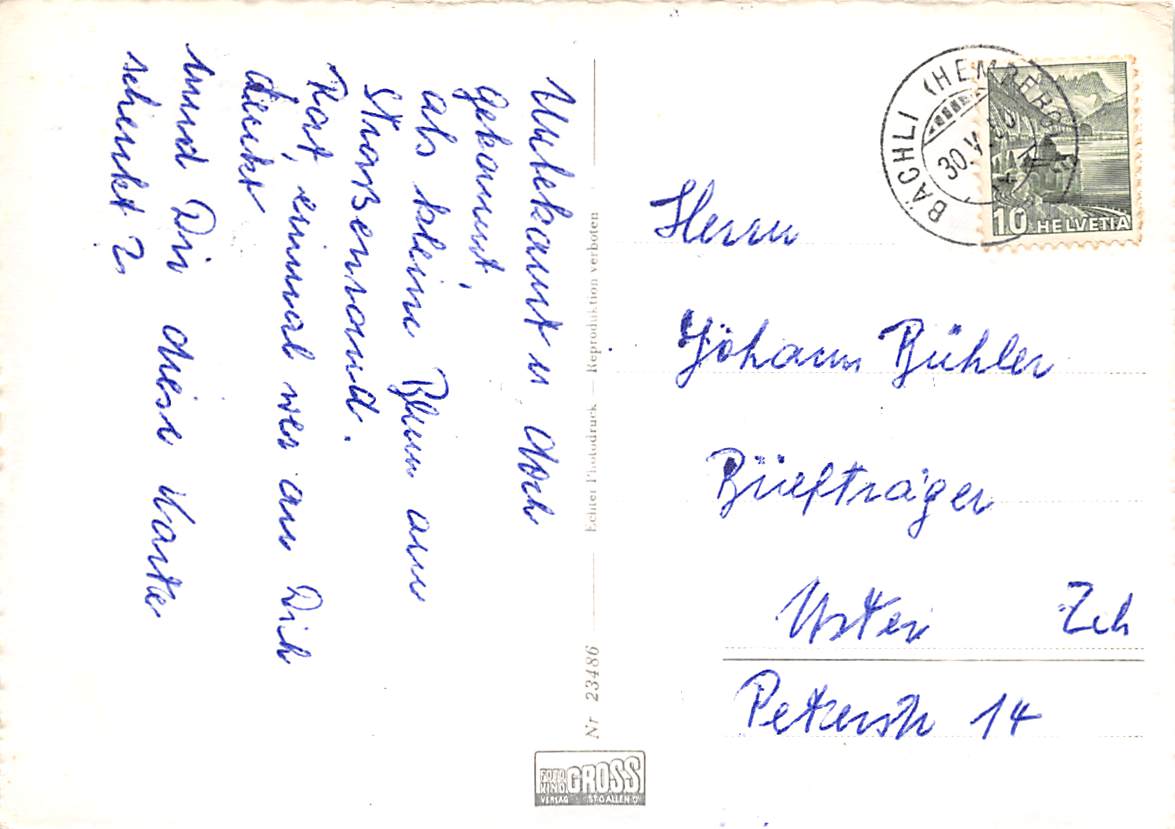 Unbekannt u doch
gekannt,
als kleine Blum am
Straßenrand.
Rat, einmal wer an Dich
denkt
unnd Dir diese Karte
schenkt?
Echter Photodruck — Reproduktion verboten
Nr 23486
FOTO KINO GROSS
VERLAG ST. GALLEN
BÄCHLI (HEMBERG)
30.V.
10 HELVETIA
Herrn
Johann Bühler
Briefträger
Uster Zch
Peterstr 14